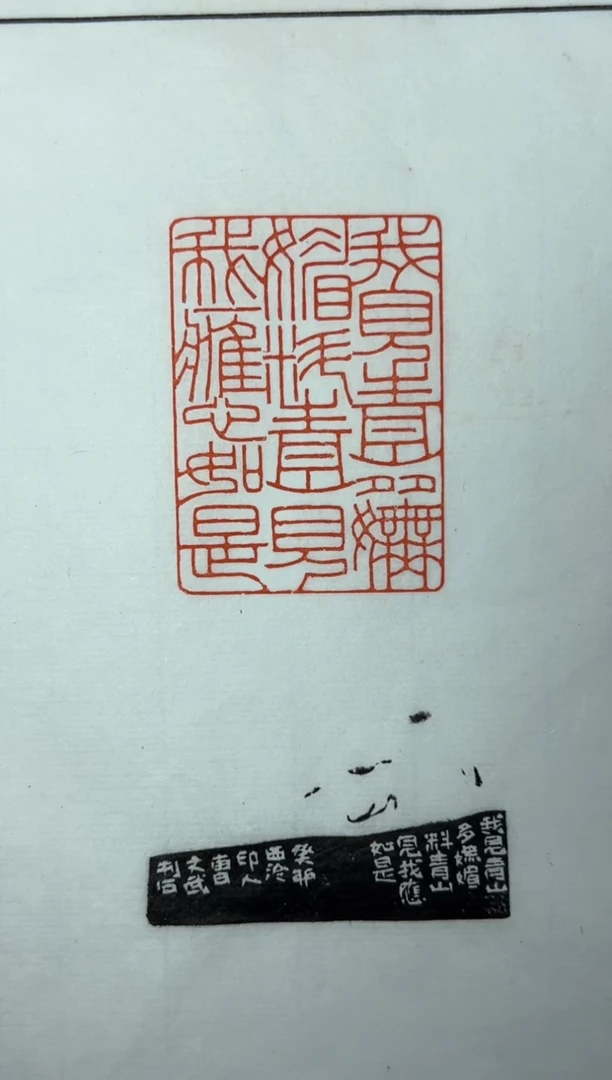 我見青山多嫵
媚料青山見
我應如是
我見青山
多嫵媚
料青山
見我應
如是
癸卯
西泠
印人
曹
文武